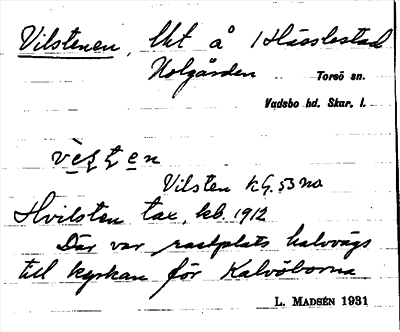 Vilstenen, Ukt å Håoslestad
Nolgården Torsö sn.
Vadsbo hd. Skar. l.
Vilsten kG. 53 no
Hvilsten tax, kb. 1912
Där var rastplats halvvägs
till kyrkan för Kalvöborna
L. MADSÉN 1931